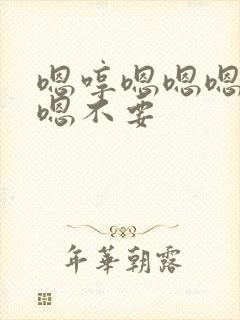 嗯哼嗯嗯嗯
嗯不要
年華朝露